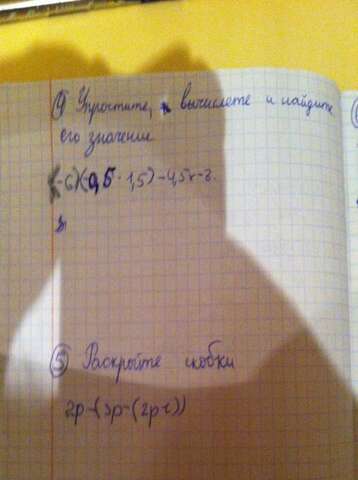 ④ Упростите, вычислете и найдите
его значение
(-6)(-0,5 - 1,5) - 4,5x - 8.
⑤ Раскройте скобки
2p-(3p-(2p-1))